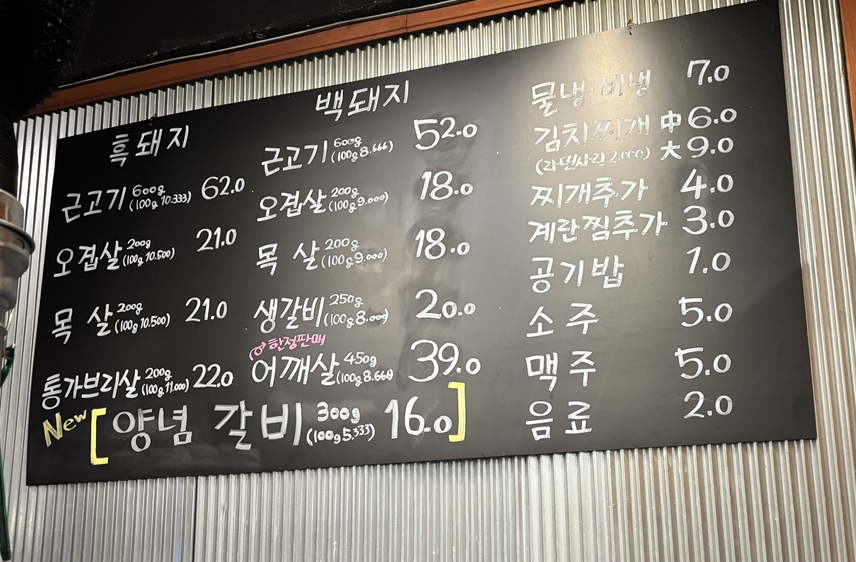 흑돼지
근고기 600g (100g 10.333) 62.0
오겹살 200g (100g 10.500) 21.0
목 살 200g (100g 10.500) 21.0
통가브리살 200g (100g 11.000) 22.0
백돼지
근고기 600g (100g 8.666) 52.0
오겹살 200g (100g 9.000) 18.0
목 살 200g (100g 9.000) 18.0
생갈비 250g (100g 8.000) 20.0
한정판매
어깨살 450g (100g 8.668) 39.0
New [양념 갈비 300g (100g 5.333) 16.0]
물냉·비냉 7.0
김치찌개 中 6.0
(라면사리 2.000) 大 9.0
찌개추가 4.0
계란찜추가 3.0
공기밥 1.0
소주 5.0
맥주 5.0
음료 2.0